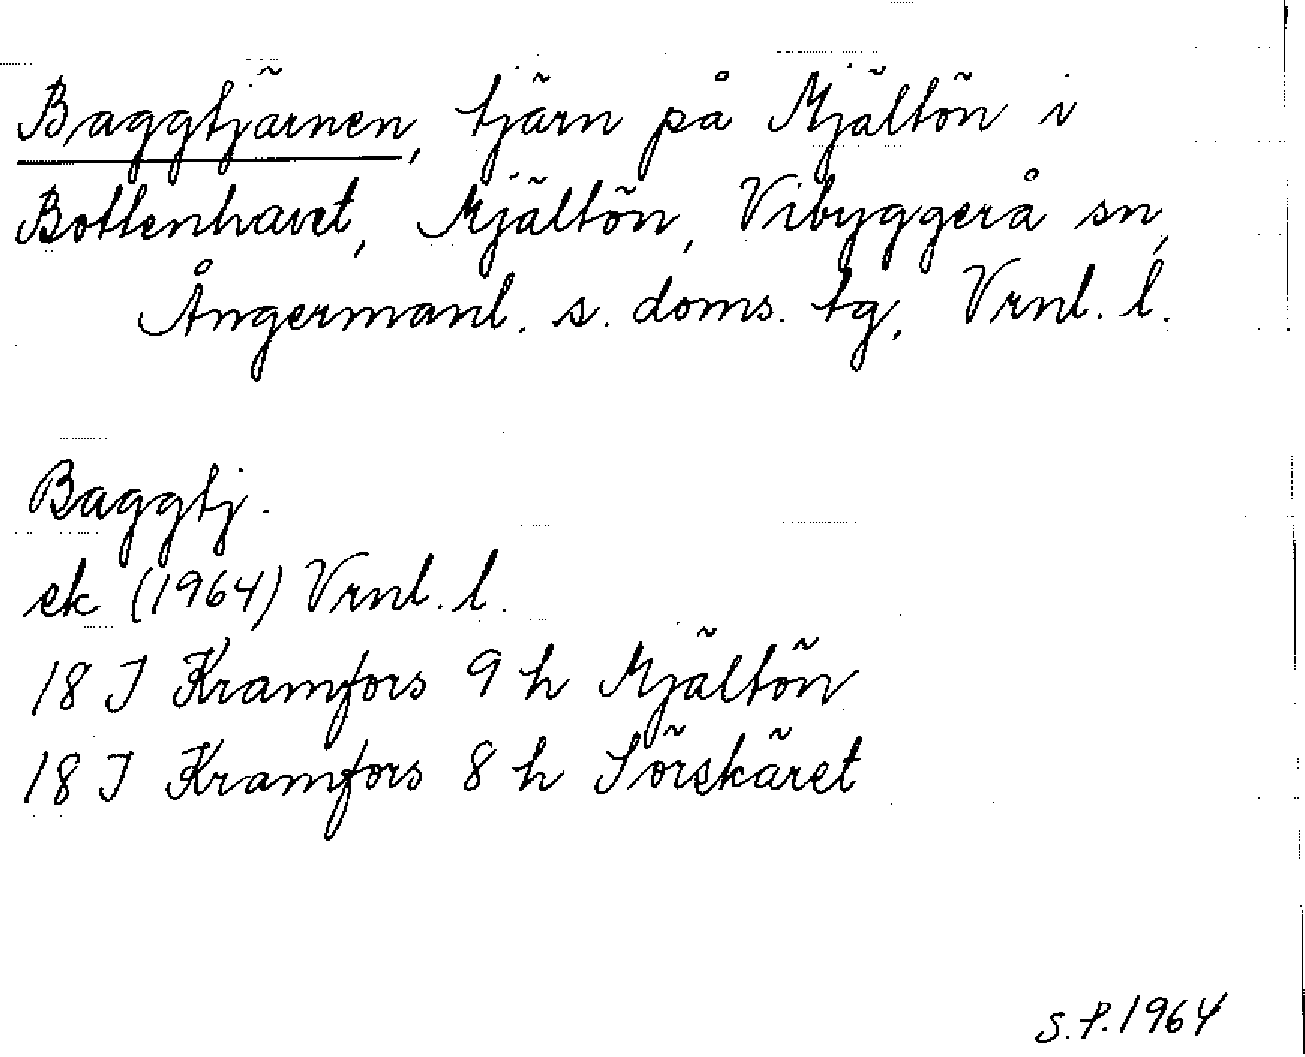 Baggtjärnen, tjärn på Mjältön i
Bottenhavet, Mjältön, Vibyggerå sn,
Ångermanl. s. doms. tg, Vrnl. l.
Baggtj.
ek (1964) Vrnl. l.
18 J Kramfors 9 h Mjältön
18 J Kramfors 8 h Sörskäret
S.P.1964